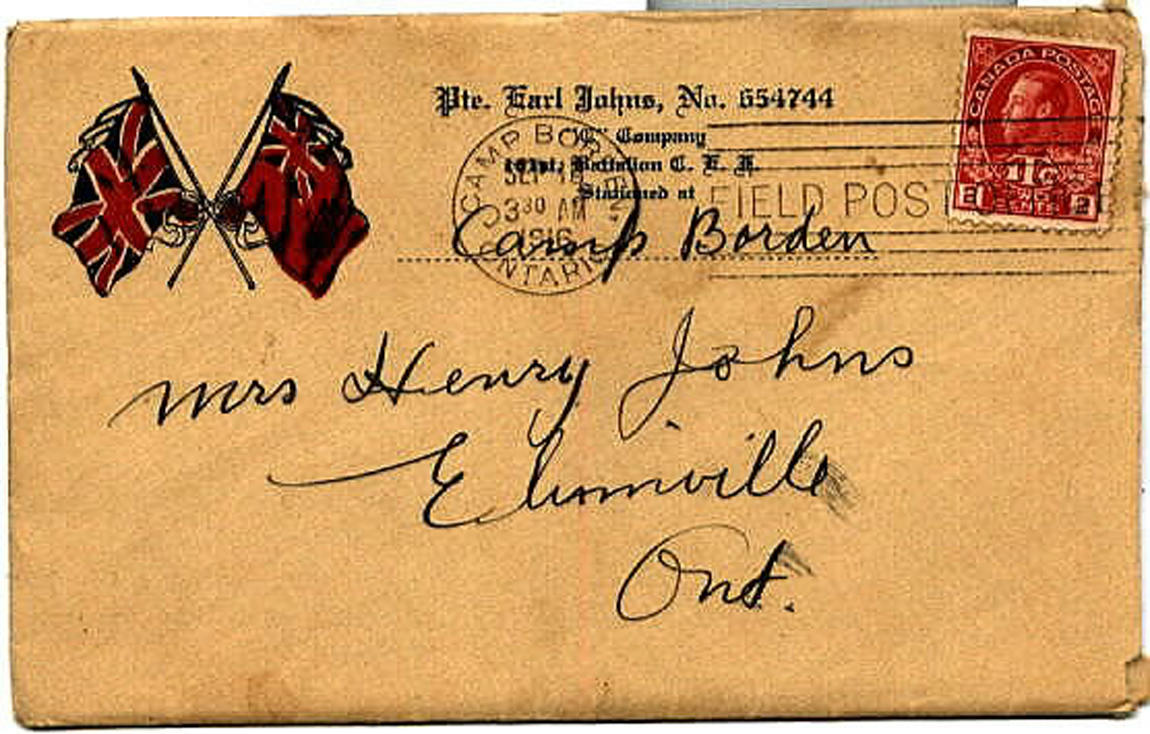 Pte. Earl Johns, No. 654744
"C" Company
161st, Battalion C. E. F.
Stationed at
Camp Borden
CAMP BORDEN
SEP
3 30 AM
1916
ONTARIO
FIELD POST
CANADA POSTAGE
1TC
2 CENTS 2
Mrs Henry Johns
Elimville
Ont.